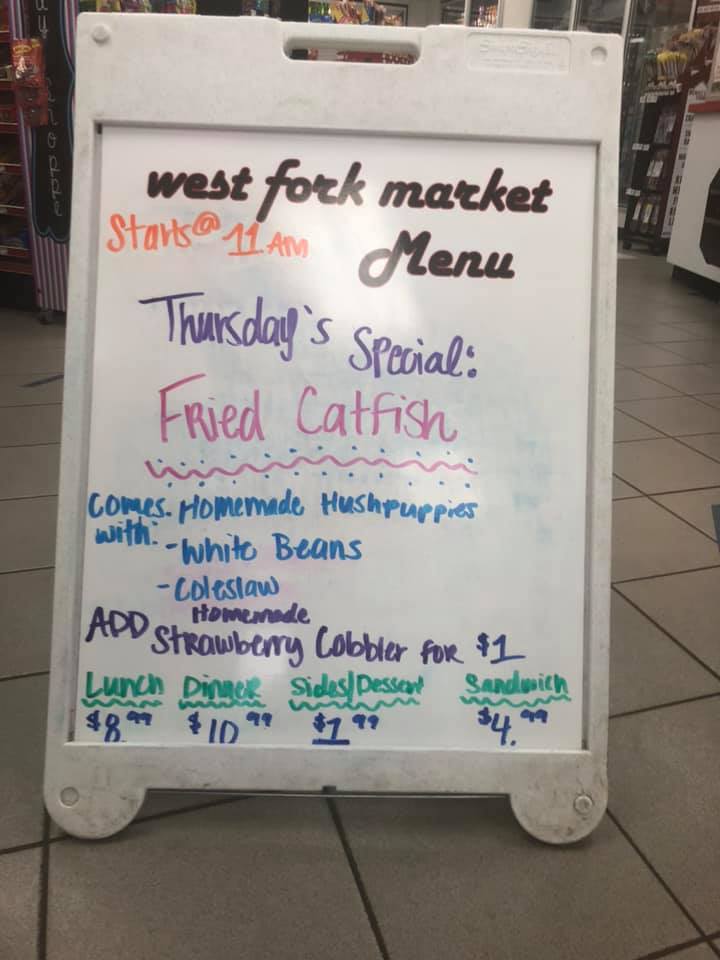 west fork market
Starts @ 11 AM
Menu
Thursday's Special:
Fried Catfish
Comes with: - Homemade Hushpuppies
- White Beans
- Coleslaw
ADD Homemade Strawberry Cobbler for $1
Lunch Dinner Sides/Dessert Sandwich
$8.99 $10.99 $1.99 $4.99